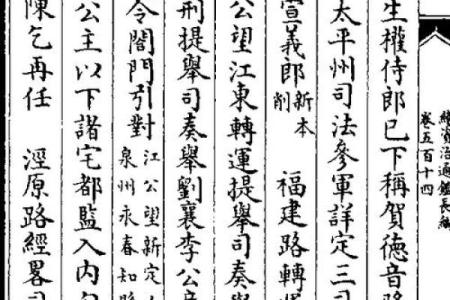 續資治通鑑長編
卷五百十四
生權侍郎已下稱賀德音
太平州司法參軍詳定三司
宣義郎 新本
削 福建路轉運
公望江東轉運提舉司奏
刑提舉司奏舉劉襄李公
令閤門引對 江公望新定人
泉州永春知縣
公主以下諸宅都監入內
陳乞再任 涇原路經畧司